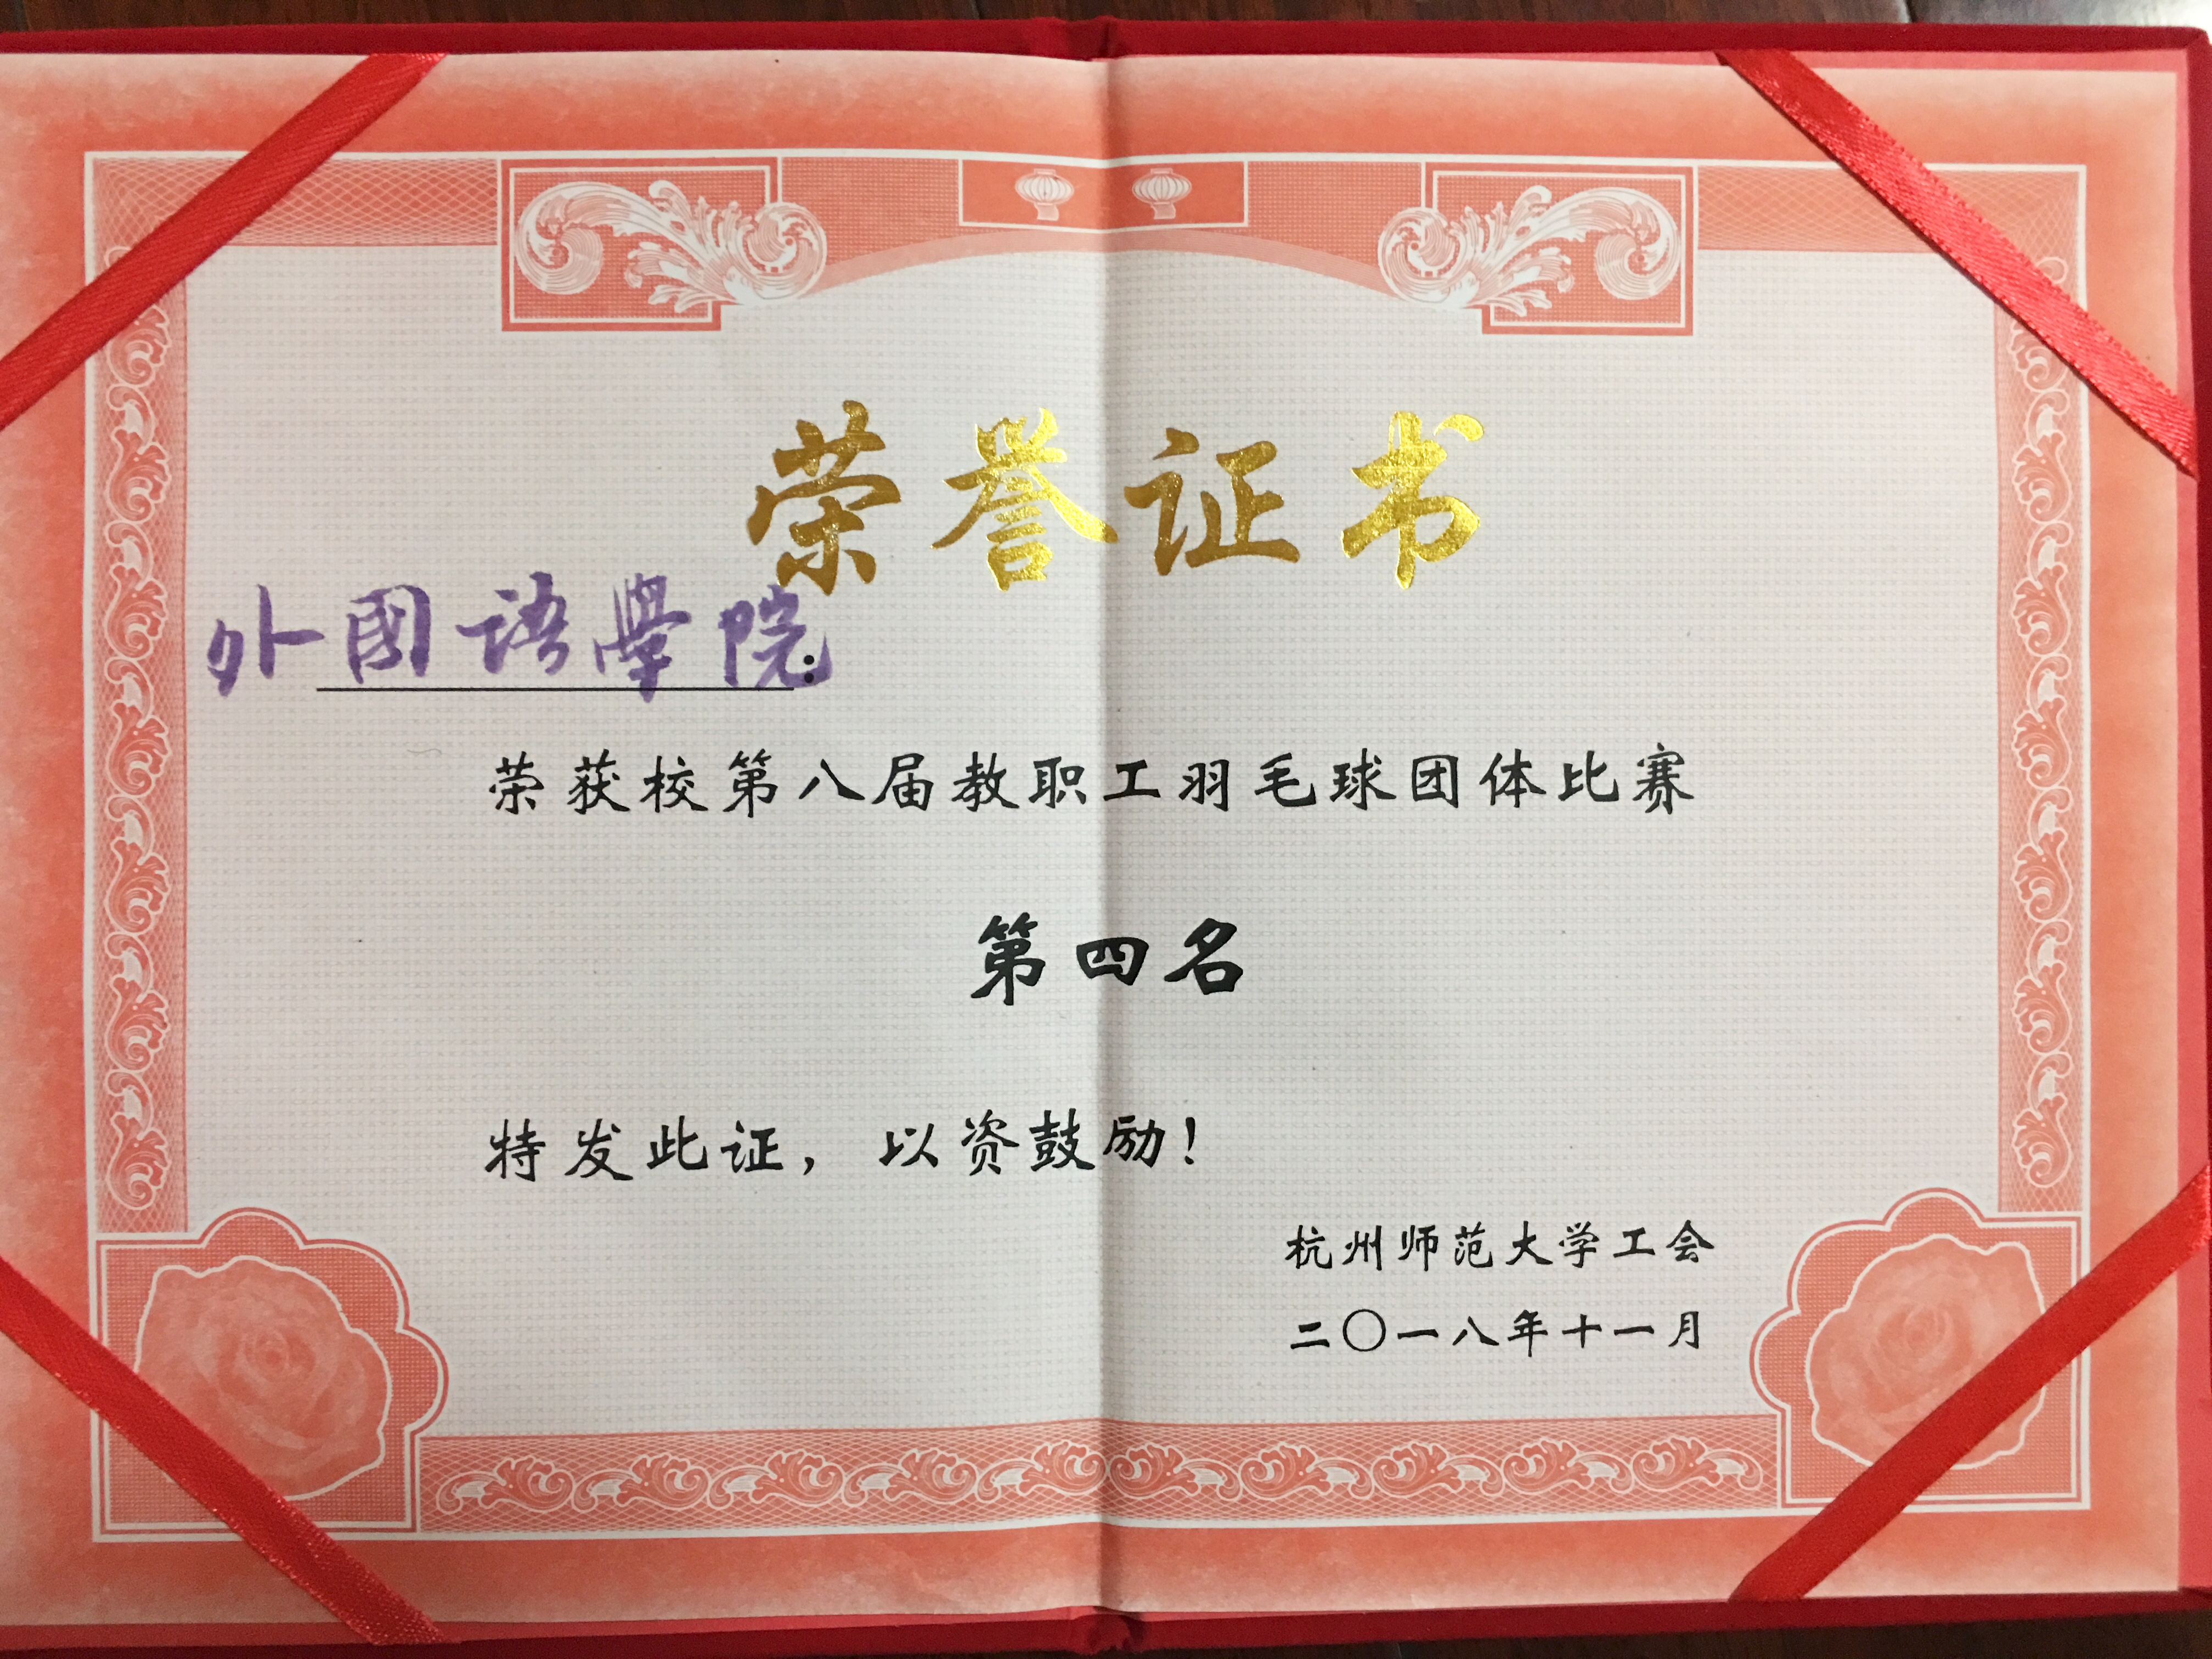 荣誉证书
外國语學院:
荣获校第八届教职工羽毛球团体比赛
第四名
特发此证，以资鼓励！
杭州师范大学工会
二〇一八年十一月